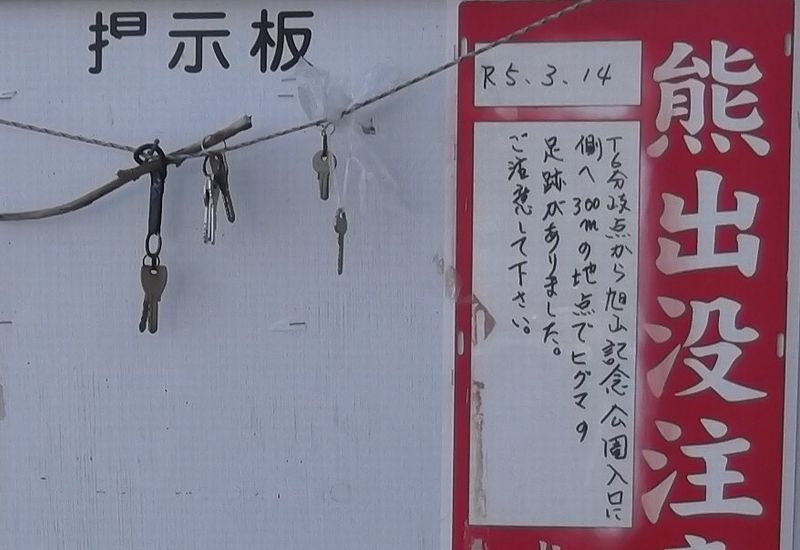 掲示板
熊出没注
R5.3.14
T6分岐点から旭山記念公園入口に
側へ300mの地点でヒグマの
足跡がありました。
ご注意して下さい。